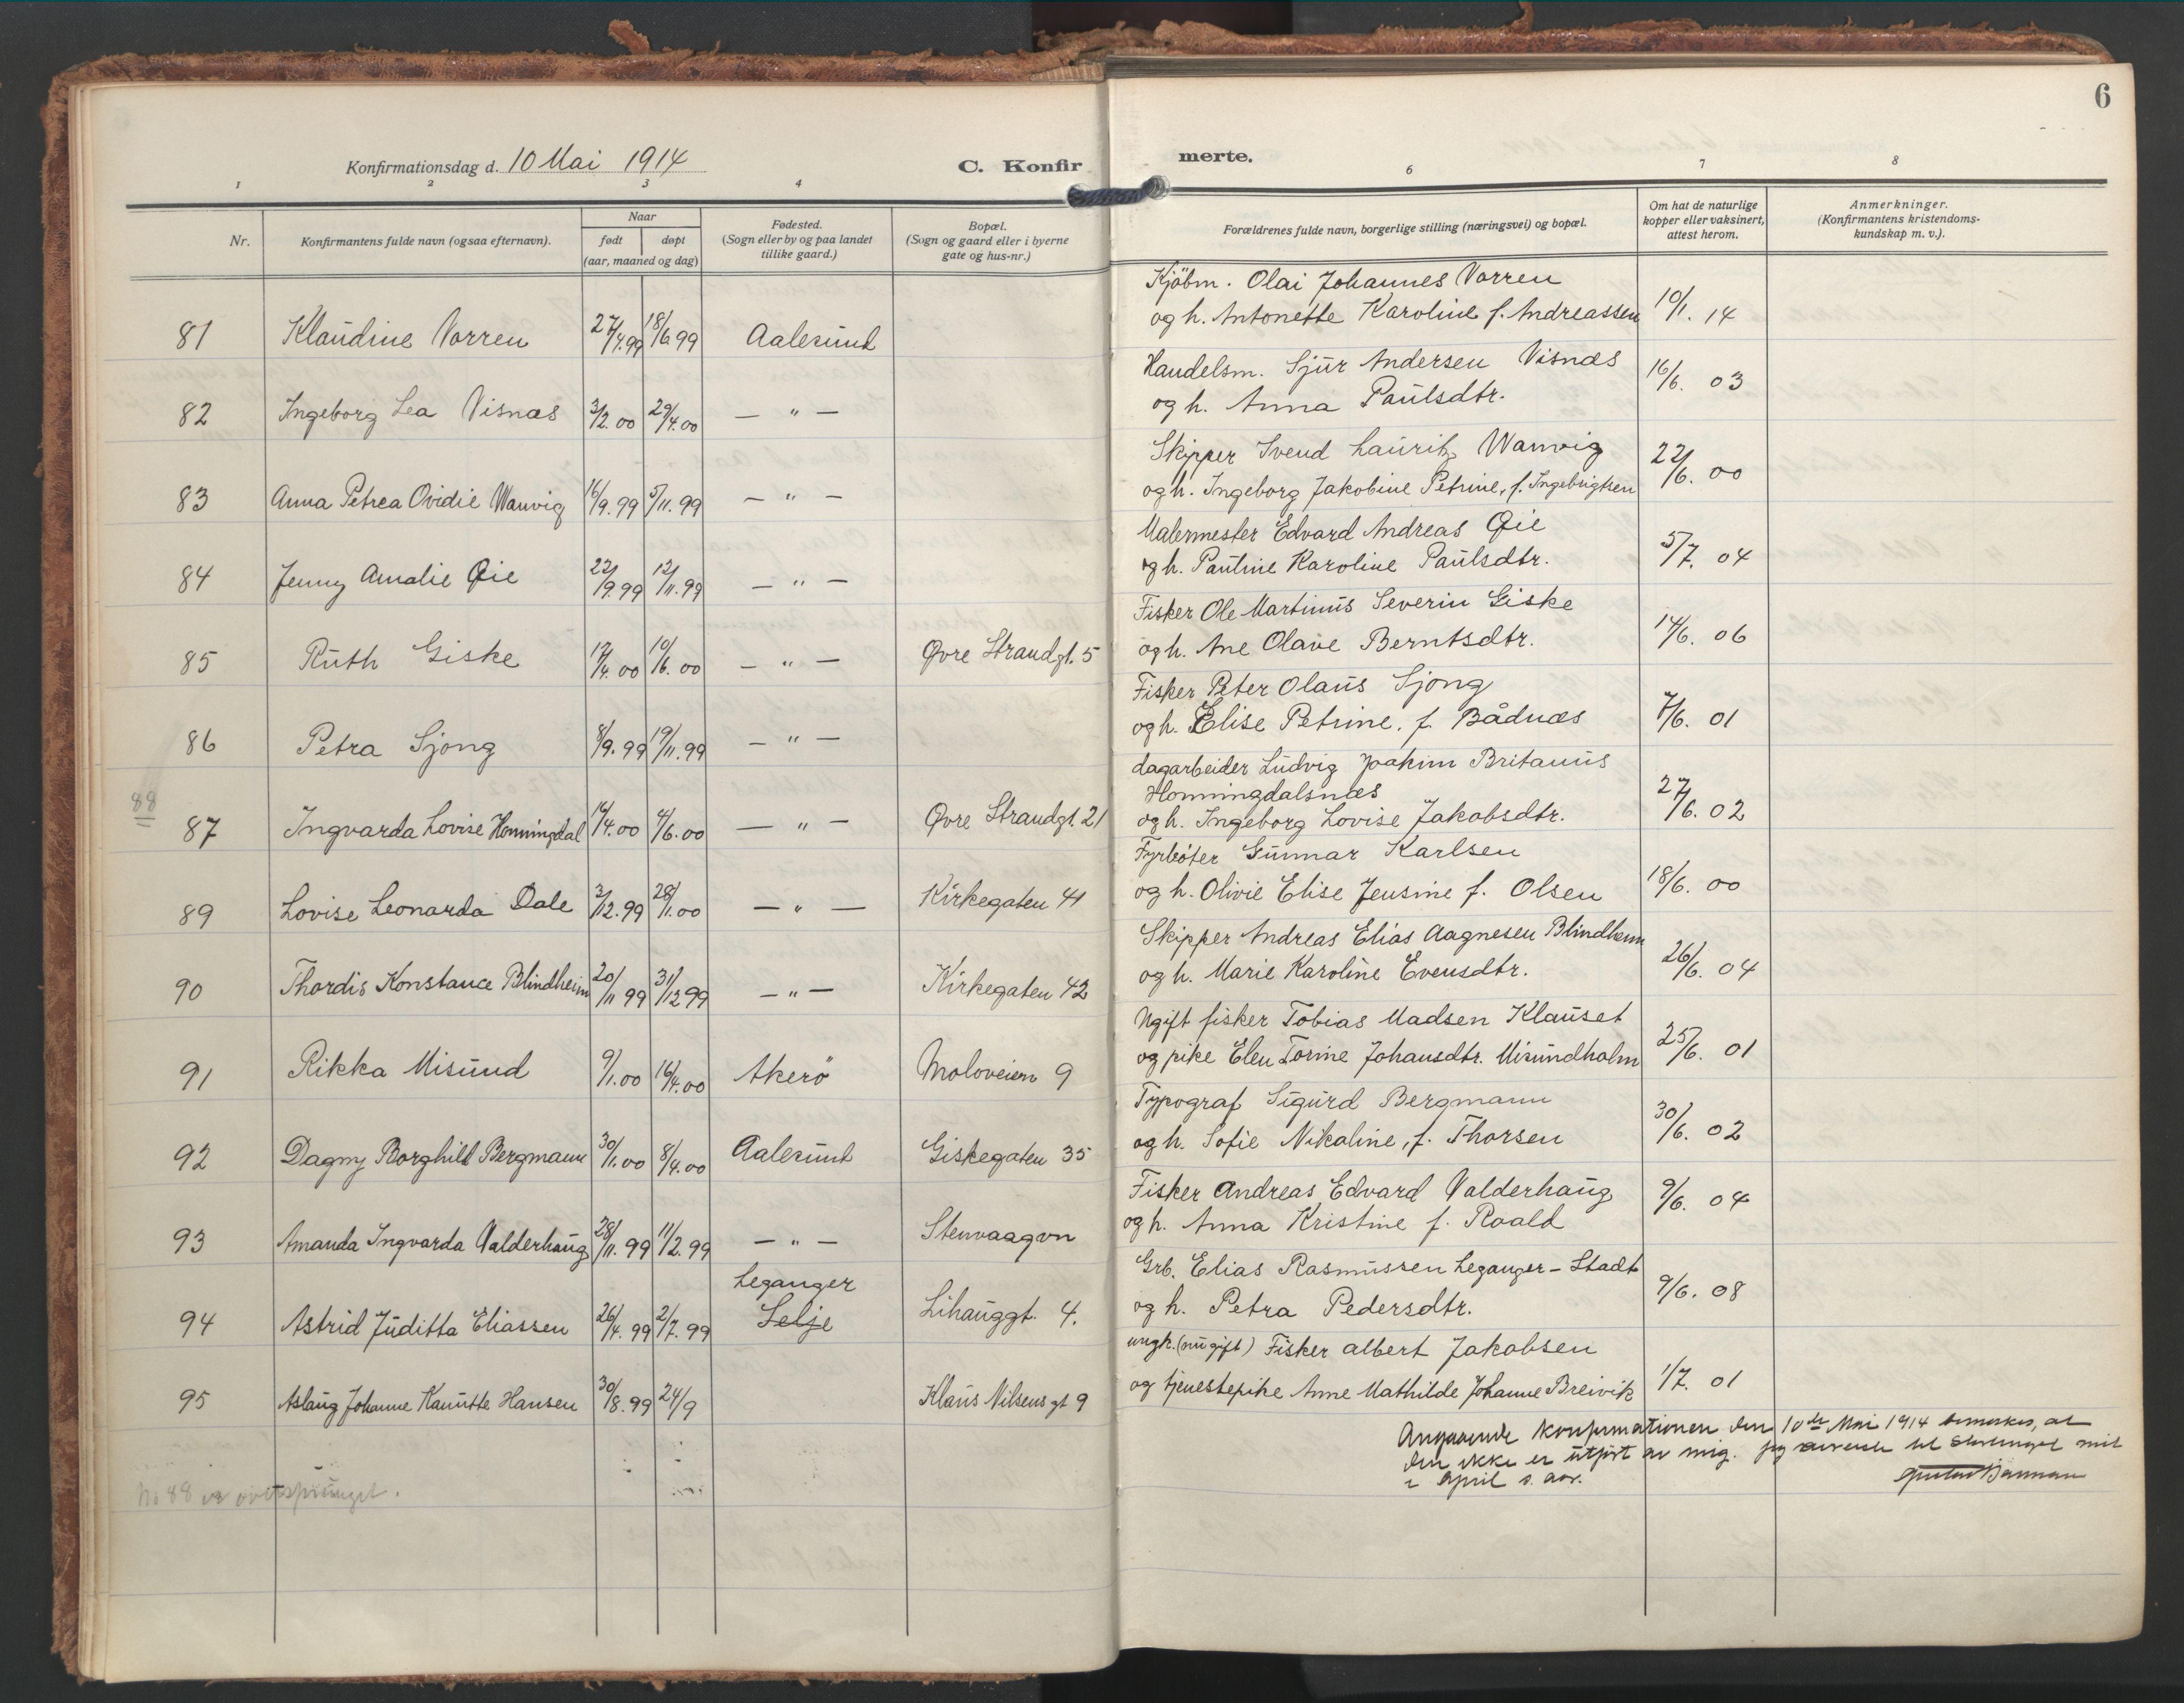 6
Konfirmationsdag d. 10 Mai 1914
C. Konfirmerte.
1 2 3 4 6 7 8
Nr.
Konfirmantens fulde navn (ogsaa efternavn).
Naar
født døpt
(aar, maaned og dag)
Fødested.
(Sogn eller by og paa landet
tillike gaard.)
Bopæl.
(Sogn og gaard eller i byerne
gate og hus-nr.)
Forældrenes fulde navn, borgerlige stilling (næringsvei) og bopæl.
Om hat de naturlige
kopper eller vaksinert,
attest herom.
Anmerkninger.
(Konfirmantens kristendoms-
kundskap m. v.).
Kjöbm. Olai Johannes Vorren
81 Klaudine Vorren 27/4.99 18/6 99 Aalesund og h. Antonette Karoline f. Andreassen 10/1. 14
Handelsm. Sjur Andersen Visnæs
82 Ingeborg Lea Visnæs 3/2.00 29/4.00 — " — og h. Anna Paulsdtr. 16/6. 03
Skipper Svend Lauritz Wanvig
83 Anna Petrea Ovidie Wanvig 16/9.99 5/11.99 — " — og h. Ingeborg Jakobine Petrine, f. Ingebrigtsen 22/6. 00
Malermester Edvard Andreas Øie
84 Jenny Amalie Øie 22/9.99 12/11.99 — " — og h. Pauline Karoline Paulsdtr. 5/7. 04
Fisker Ole Martinus Severin Giske
85 Ruth Giske 17/4.00 10/6.00 — " — Øvre Strandgt. 5 og h. Ane Olave Berntsdtr. 14/6. 06
Fisker Peter Olaus Sjong
86 Petra Sjong 8/9.99 19/11.99 — " — og h. Elise Petrine, f. Bådnæs 7/6. 01
dagarbeider Ludvig Joakim Britanus
Honningdalsnæs
88
87 Ingvarda Lovise Honningdal 14/4.00 4/6.00 — " — Øvre Strandgt. 21 og h. Ingeborg Lovise Jakobsdtr. 27/6. 02
Fyrbøter Gunnar Karlsen
89 Lovise Leonarda Dale 3/12.99 28/1.00 — " — Kirkegaten 41 og h. Olivie Elise Jensine f. Olsen 18/6. 00
Skipper Andreas Elias Aagnesen Blindheim
90 Thordis Konstance Blindheim 20/11 99 31/12 99 — " — Kirkegaten 42 og h. Marie Karoline Evensdtr. 26/6. 04
Ugift fisker Tobias Madsen Klauset
91 Rikka Misund 9/1.00 16/4.00 Akerö Moloveien 9 og pike Elen Torine Johansdtr. Misundholm 25/6. 01
Typograf Sigurd Bergmann
92 Dagny Borghild Bergmann 30/1.00 8/4.00 Aalesund Giskegaten 35 og h. Sofie Nikoline, f. Thorsen 30/6. 02
Fisker Andreas Edvard Valderhaug
93 Amanda Ingvarda Valderhaug 28/11.99 11/2.99 — " — Stenvaagvn og h. Anna Kristine f. Roald 9/6. 04
Grb. Elias Rasmussen Leganger - Stadt
Leganger
94 Astrid Juditta Eliassen 26/4.99 2/7.99 Selje Lihauggt. 4. og h. Petra Pedersdtr. 9/6. 08
ungk. (nu gift) Fisker Albert Jakobsen
95 Aslaug Johanne Kanutte Hansen 30/8.99 24/9 Klaus Nilsens gt 9 og tjenestepike Anne Mathilde Johanne Breivik 1/7. 01
Angaaende konfirmationen den 10de Mai 1914 bemerkes, at
den ikke er utført av mig. Jeg reiste til Stortinget mit
i April s. aar.
No 88 er oversprunget.